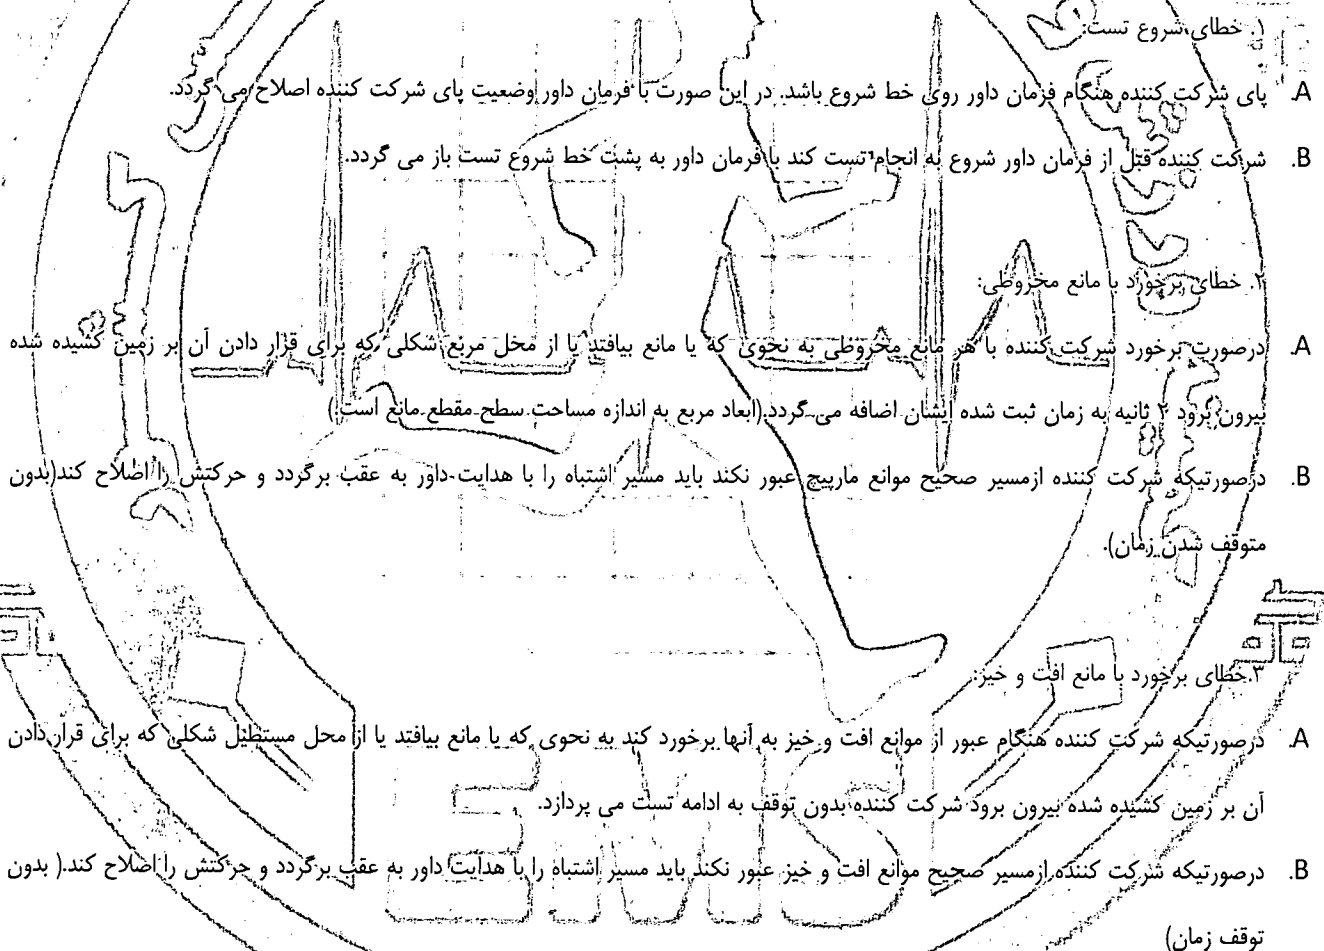 ۱. خطای شروع تست:
A. پای شرکت کننده هنگام فرمان داور روی خط شروع باشد. در این صورت با فرمان داور وضعیت پای شرکت کننده اصلاح می گردد.
B. شرکت کننده قبل از فرمان داور شروع به انجام تست کند با فرمان داور به پشت خط شروع تست باز می گردد.
۲. خطای برخورد با مانع مخروطی:
A. درصورت برخورد شرکت کننده با هر مانع مخروطی به نحوی که یا مانع بیافتد یا از محل مربع شکلی که برای قرار دادن آن بر زمین کشیده شده
بیرون برود ۲ ثانیه به زمان ثبت شده ایشان اضافه می گردد.(ابعاد مربع به اندازه مساحت سطح مقطع مانع است.)
B. درصورتیکه شرکت کننده ازمسیر صحیح موانع مارپیچ عبور نکند باید مسیر اشتباه را با هدایت داور به عقب برگردد و حرکتش را اصلاح کند(بدون
متوقف شدن زمان).
۳.خطای برخورد با مانع افت و خیز:
A. درصورتیکه شرکت کننده هنگام عبور از موانع افت و خیز به آنها برخورد کند به نحوی که یا مانع بیافتد یا از محل مستطیل شکلی که برای قرار دادن
آن بر زمین کشیده شده بیرون برود شرکت کننده بدون توقف به ادامه تست می پردازد.
B. درصورتیکه شرکت کننده ازمسیر صحیح موانع افت و خیز عبور نکند باید مسیر اشتباه را با هدایت داور به عقب برگردد و حرکتش را اصلاح کند.( بدون
توقف زمان)
EMS